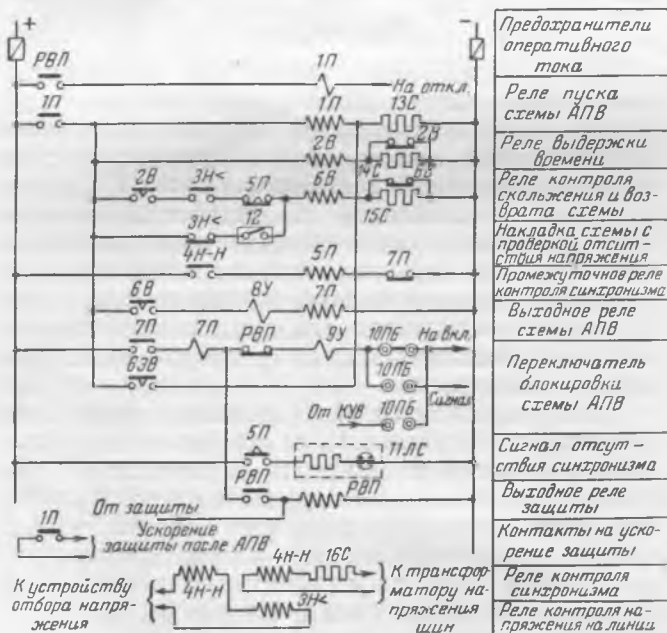 +
−
РВП
1П
На откл.
1П
1П
13С
2В
2В
14С
6В
2В
3Н<
5П
6В
15С
3Н<
12
4Н-Н
5П
7П
6В
8У
7П
7П
7П
РВП
9У
10ПБ
На вкл.
6ЭВ
10ПБ
Сигнал
От КУВ
10ПБ
5П
11ЛС
РВП
РВП
От защиты
1П
Ускорение
защиты после АПВ
4Н-Н
16С
К устройству
отбора напря-
жения
4Н-Н
3Н<
К трансфор-
матору на-
пряжения
шин
Предохранители
оперативного
тока
Реле пуска
схемы АПВ
Реле выдержки
времени
Реле контроля
скольжения и воз-
врата схемы
Накладка схемы с
проверкой отсут-
ствия напряжения
Промежуточное реле
контроля синхронизма
Выходное реле
схемы АПВ
Переключатель
блокировки
схемы АПВ
Сигнал отсут-
ствия синхронизма
Выходное реле
защиты
Контакты на уско-
рение защиты
Реле контроля
синхронизма
Реле контроля на-
пряжения на линии